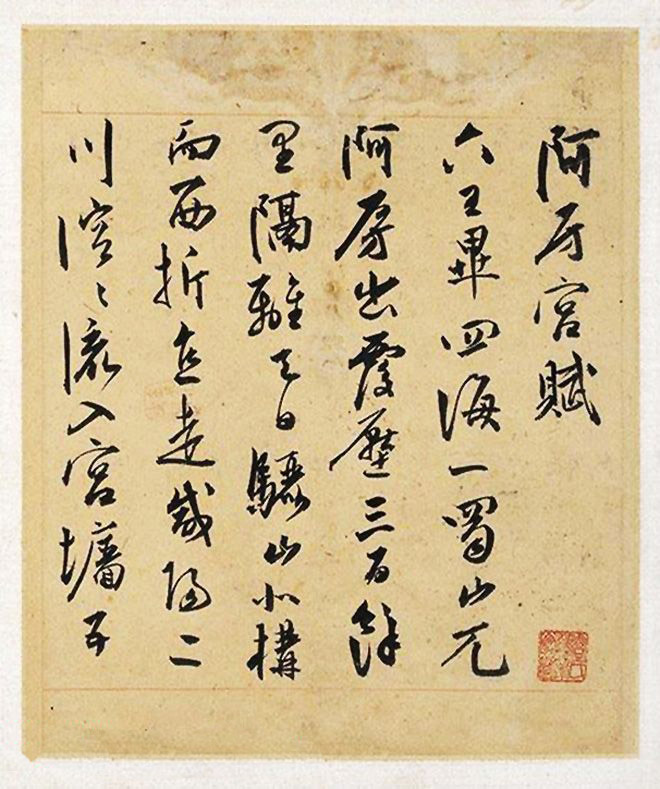 阿房宫賦
六王畢四海一蜀山兀
阿房出覆壓三百餘
里隔離天日驪山北構
而西折直走咸陽二
川溶〻流入宫墻五